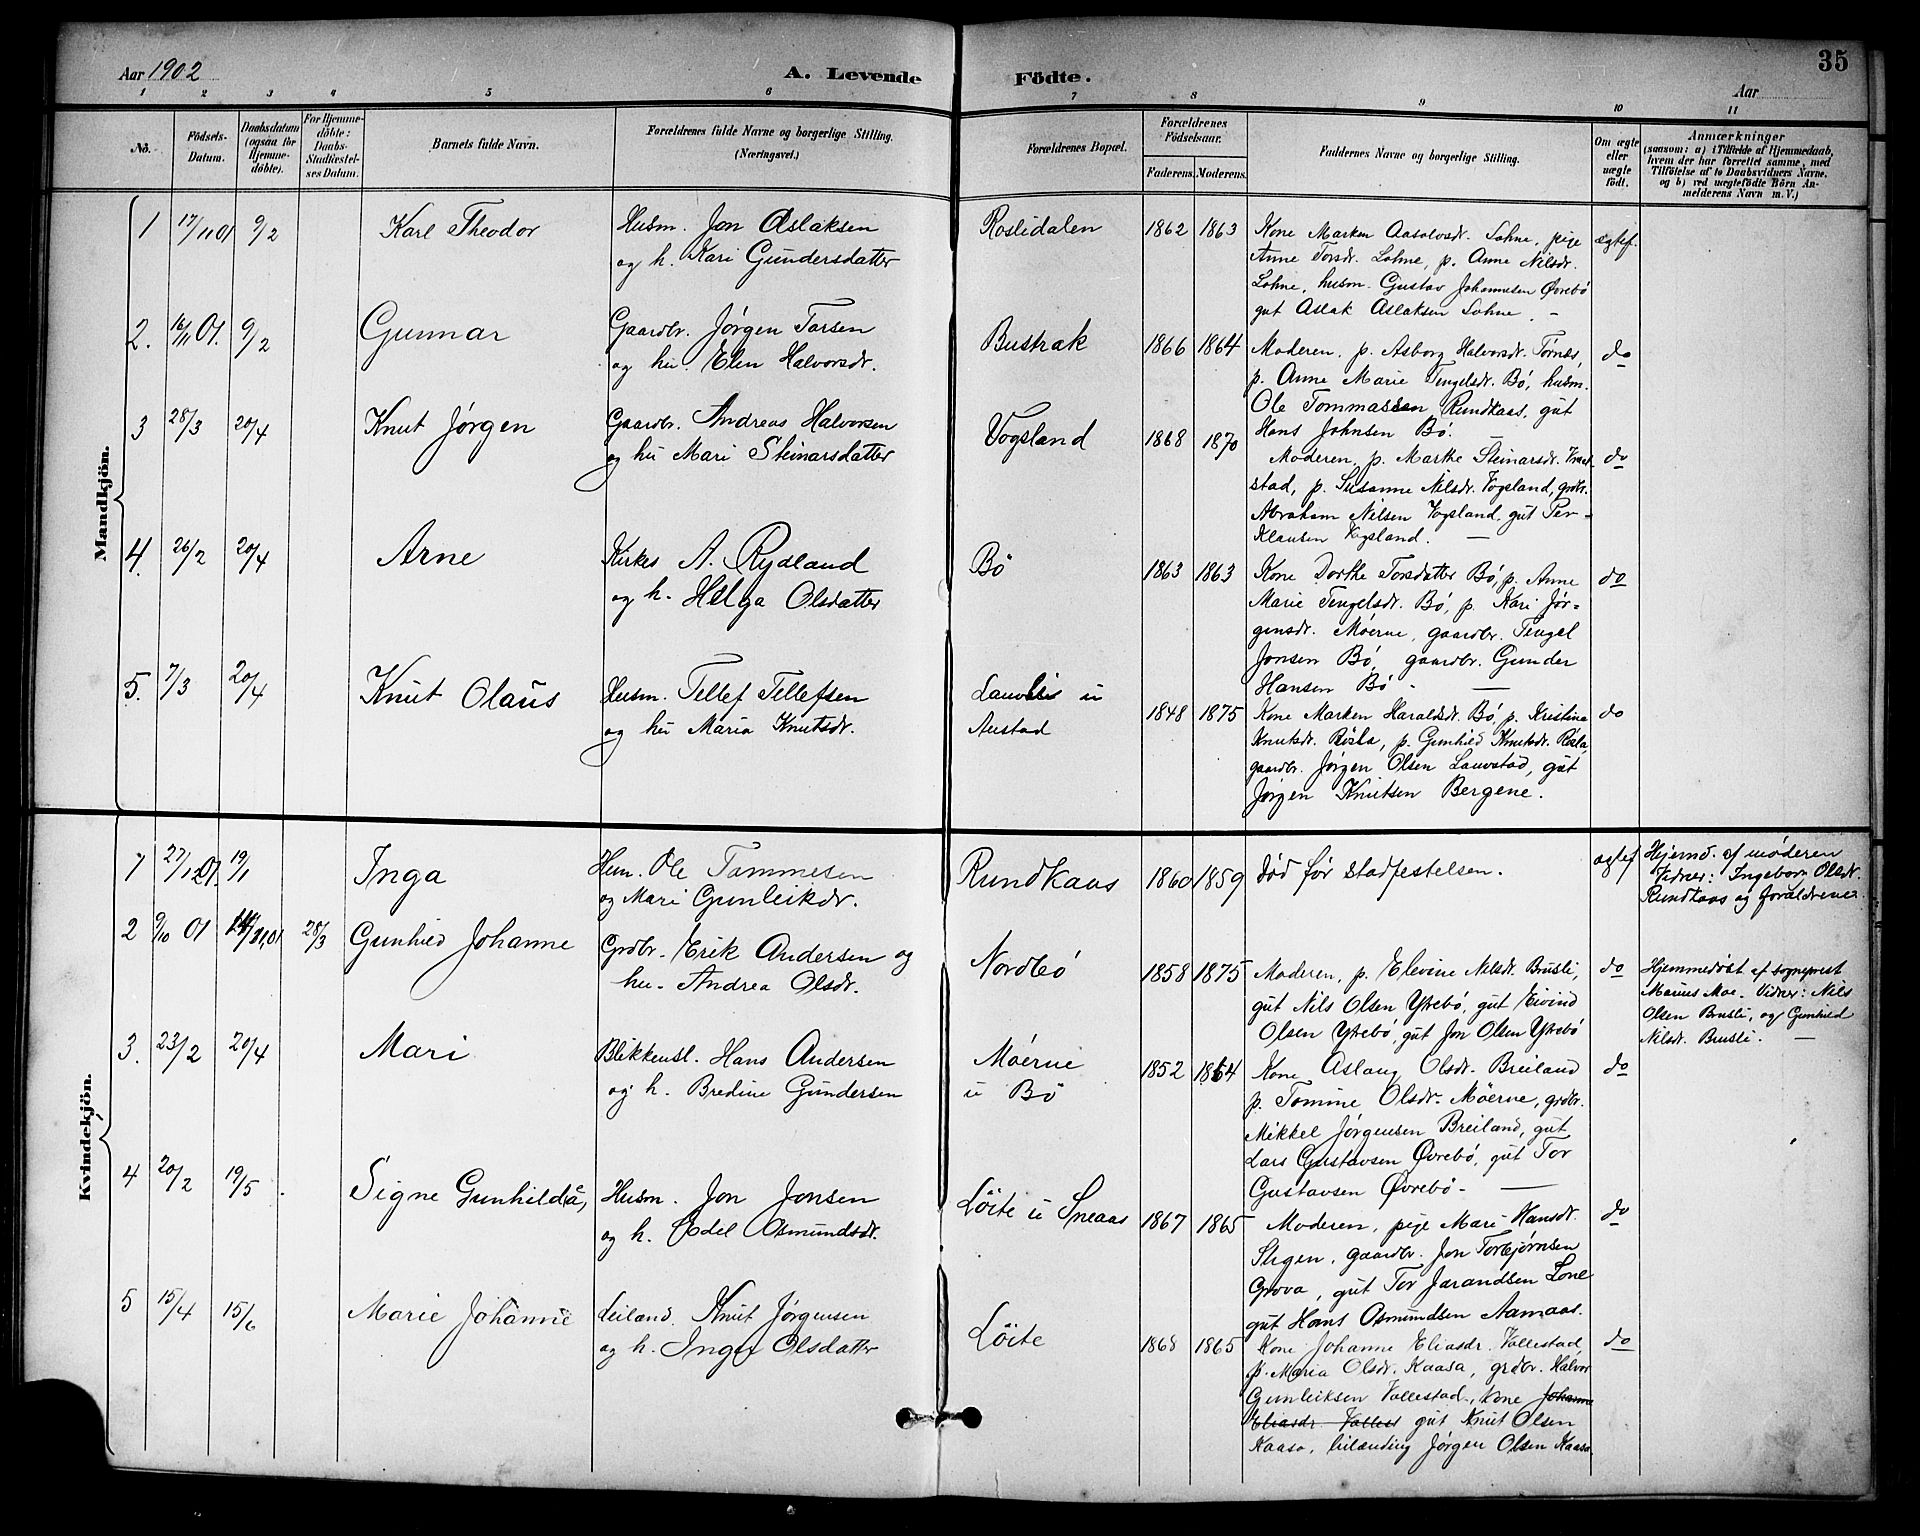 Aar 1902
A. Levende Födte.
35
Aar
1 2 3 4 5 6 7 8 9 10 11
No.
Födsels-Datum.
Daabsdatum (ogsaa for Hjemmedöbte).
For Hjemmedöbte: Daabs-Stadfæstelses Datum.
Barnets fulde Navn.
Forældrenes fulde Navne og borgerlige Stilling. (Næringsvei.)
Forældrenes Bopæl.
Forældrenes Födselsaar.
Faderens. Moderens.
Faddernes Navne og borgerlige Stilling.
Om ægte eller uægte födt.
Anmærkninger
(saasom: a) i Tilfælde af Hjemmedaab, hvem der har forrettet samme, med Tilföielse af to Daabsvidners Navne, og b) ved uægtefödte Börn Anmelderens Navn m. V.)
Mandkjön.
1 17/11 01 9/2 Karl Theodor
Husm. Jon Aslaksen
og h. Kari Gundersdatter
Roslidalen 1862 1863
Kone Marken Aasolvsdr. Lohne, pige
Anne Torsdr. Lohne, p. Anne Nilsdr.
Lohne, husm. Gustav Johannesen Øvrebö
gut Aslak Aslaksen Lohne. –
ægtef.
2. 16/11 01. 9/2 Gunnar
Gaardbr. Jørgen Tarsen
og hu. Elen Halvorsdr.
Bustrak 1866 1864
Moderen, p. Asborg Halvorsdr. Tørnes,
p. Anne Marie Tengelsdr. Bö, husm.
Ole Tommassen Rundkaas, gut
Hans Johnsen Bö.
do
3 28/3 20/4 Knut Jörgen
Gaardbr. Andreas Halvorsen
og hu Mari Steinarsdatter
Vogsland 1868 1870
Moderen, p. Marthe Steinarsdr.
stad, p. Susanne Nilsdr. Vogsland, grdbr.
Abraham Nilsen Vogsland, gut Per
Klausen Vogsland. –
do
4. 26/2 20/4 Arne
Kirkes A. Rydland
og h. Helga Olsdatter
Bö 1863 1863
Kone Dorthe Torsdatter Bö, p. Anne
Marie Tengelsdr. Bö, p. Kari Jör-
gensdr. Möerne, gaardbr. Tengel
Jonsen Bö, gaardbr. Gunder
Hansen Bö –
do
5. 7/3 20/4 Knut Olaus
Husm. Tellef Tellefsen
og hu Maria Knutsdr.
Lauvlii u
Austad
1848 1875
Kone Marken Haraldsdr. Bö, p. Kristine
Knutsdr. Røsla, p. Gunhild Knutsdr. Røsla,
gaardbr. Jörgen Olsen Lauvstad, gut
Jørgen Knutsen Bergene.
do
Kvindekjön.
1 27/12 01. 19/1 Inga
Hum. Ole Tommesen
og Mari Gunleikdr.
Rundkaas 1860 1859
Död før stadfestelsen.
ægtef
Hjemd. af moderen
Vidner: Ingeborg Olsdr.
Rundkaas og forældrene.
2 9/10 01 11,01 28/3 Gunhild Johanne
Grdbr. Erik Andersen og
hu. Andrea Olsdr.
Nordbö 1858 1875
Moderen, p. Elevine Nilsdr. Brusli,
gut Nils Olsen Ytrebö, gut Eivind
Olsen Ytrebö, gut Jon Olsen Ytrebö
do
Hjemmedøbt af sogneprest
Marius Moe. Vidner: Nils
Olsen Brusli, og Gunhild
Nilsdr. Brusli. –
3. 23/2 20/4 Mari
Blikkensl. Hans Andersen
og h. Bredine Gundersen
Möerne
u Bö
1852 1864
Kone Aslaug Olsdr. Breiland
p. Tomine Olsdr. Möerne, grdbr.
Mikkel Jørgensen Breiland, gut
Lars Gustavsen Øvrebö, gut Tor
Gustavsen Øvrebö –
do
4 20/2 19/5 Signe Gunhilda,
Husm. Jon Jonsen
og h. Edel Osmundsdr.
Löite u Sneaas 1867 1865
Moderen, pige Mari Hansdr.
Stigen, gaardbr. Jon Torbjørnsen
Grova, gut Tor Jarandsen Lone
gut Hans Osmundsen Aamaas.
do
5 15/4 15/6 Marie Johanne
Leiland. Knut Jørgensen
og h. Inger Olsdatter
Löite 1868 1865
Kone Johanne Eliasdr. Vallestad,
p. Maria Olsdr. Kaasa, grdbr. Halvor
Gunleiksen Vallestad, kone Johanne
Eliasdr. Vallest gut Knut Olsen
Kaasa, inlænding Jørgen Olsen Kaasa.
do